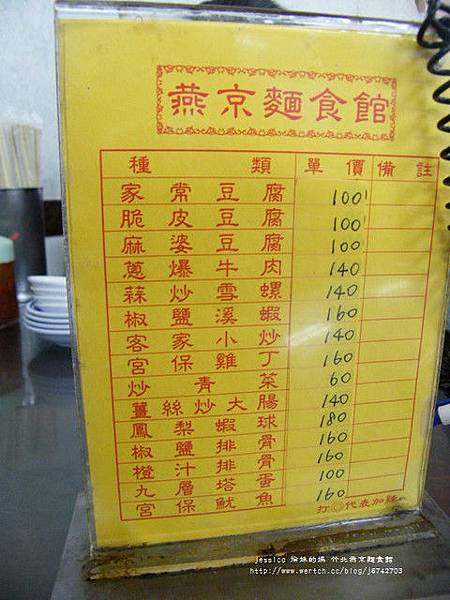 燕京麵食館
種類 單價 備註
家常豆腐 100
脆皮豆腐 100
麻婆豆腐 100
蔥爆牛肉 140
蒜炒雪螺 140
椒鹽溪蝦 160
客家小炒 140
宮保雞丁 160
炒青菜 60
薑絲炒大腸 140
鳳梨蝦球 180
椒鹽排骨 160
橙汁排骨 160
九層塔蛋 100
宮保魷魚 160
打◎代表加辣
竹北燕京麵食館
http://www.wertch.cc/blog/j6742703